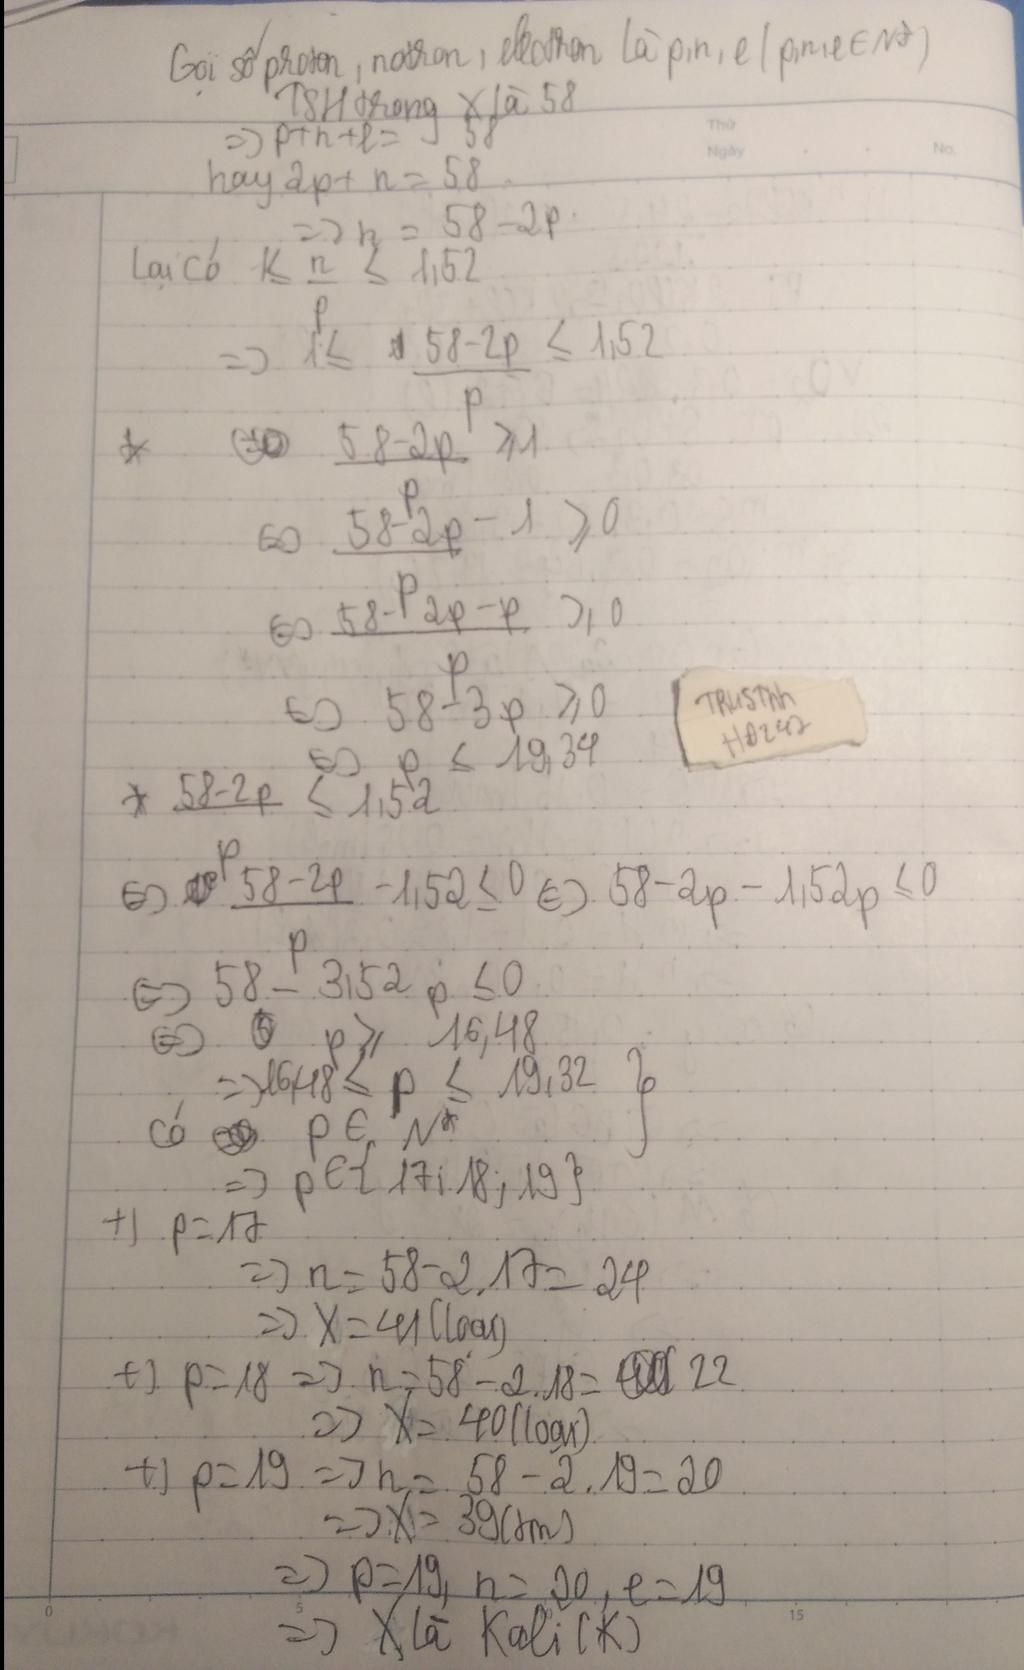 Gọi số proton, nơtron, electron là p,n,e (p,n,e ∈ N*)
TSH trong X là 58
=> p+n+e= 58
Thứ
Ngày
No.
hay 2p+ n = 58
=> n = 58-2p
Lại có 1≤ n/p ≤ 1,52
=> 1≤ (58-2p)/p ≤ 1,52
* (58-2p)/p ≥ 1
<=> (58-2p)/p - 1 ≥ 0
<=> (58-2p-p)/p ≥ 0
<=> 58-3p ≥ 0
<=> p ≤ 19,34
TRUSTnh
HĐ247
* (58-2p)/p ≤ 1,52
<=> (58-2p)/p - 1,52 ≤ 0 <=> 58-2p - 1,52p ≤ 0
<=> 58 - 3,52 p ≤ 0
<=> p ≥ 16,48
=> 16,48 ≤ p ≤ 19,32 }
có p ∈ N*
=> p ∈ { 17; 18; 19}
+) p=17
=> n= 58-2.17= 24
=> X= 41 (loại)
+) p=18 => n= 58 - 2.18= 22
=> X= 40 (loại)
+) p=19 => n= 58 - 2.19=20
=> X= 39 (tm)
=> p=19, n= 20, e=19
0 5 15
=> X là Kali (K)